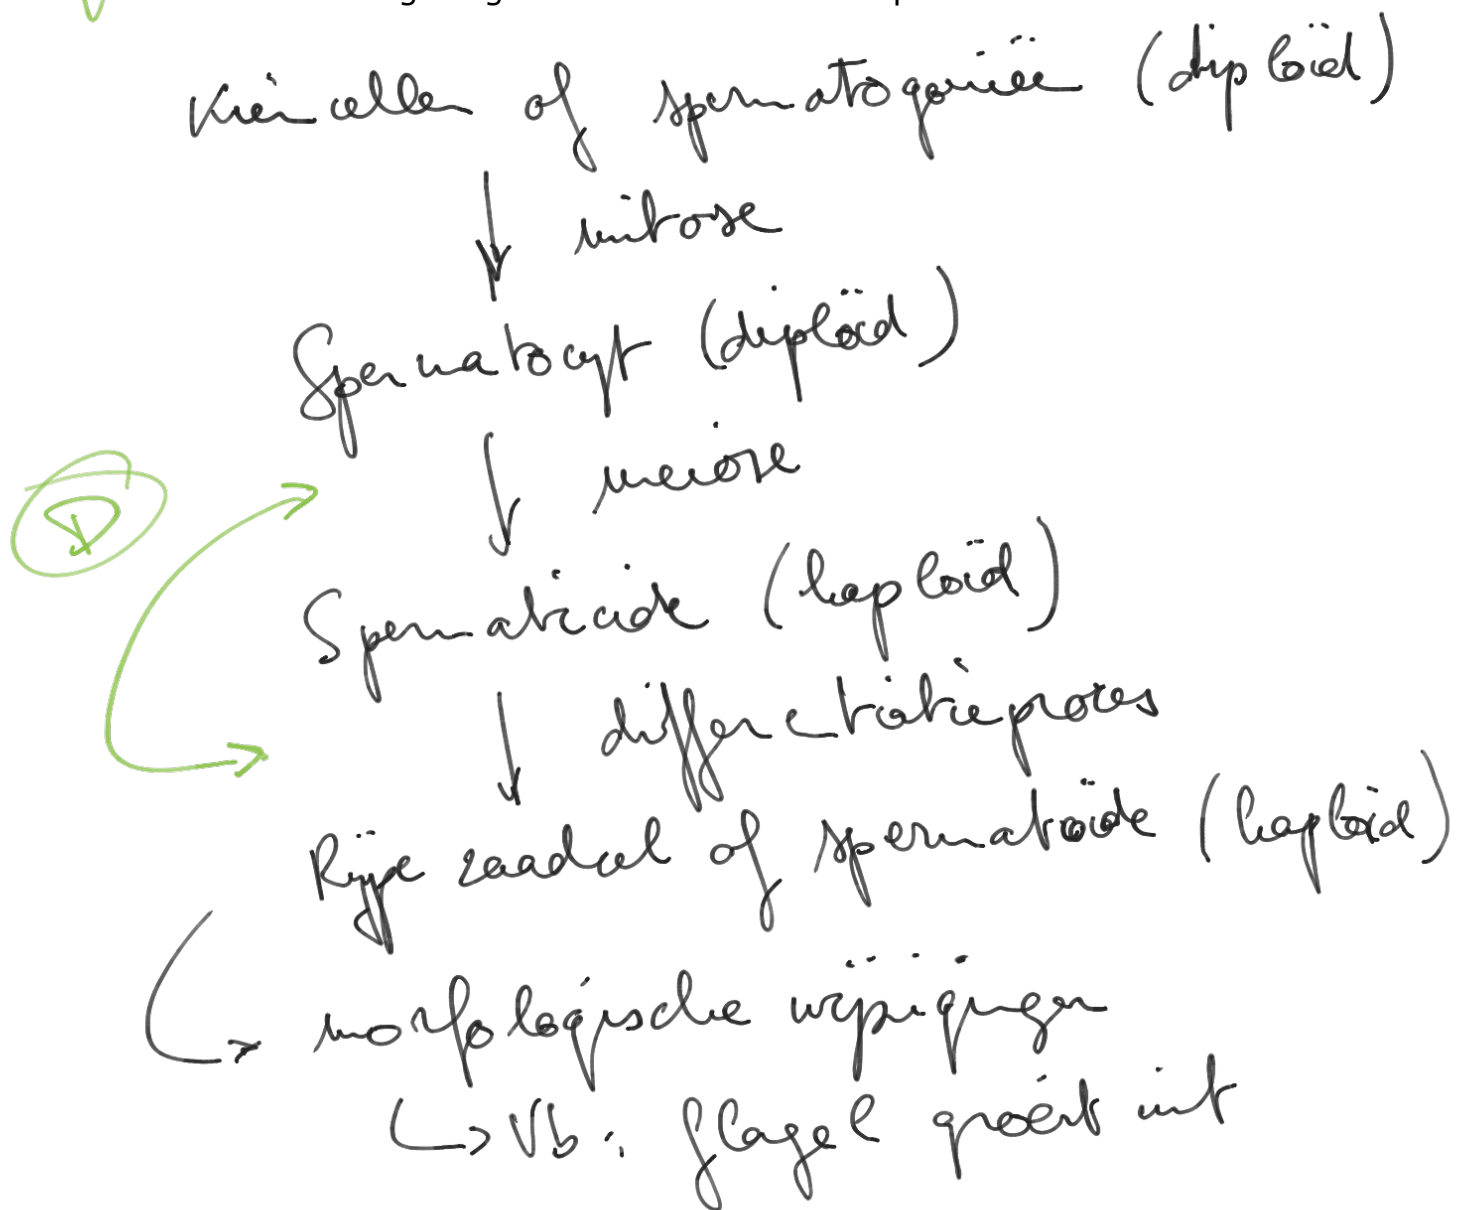 Kiemcellen of spermatogoniën (diploïd)
mitose
Spermatocyt (diploïd)
meiose
D
Spermaticide (haploïd)
differentiatieproces
Rijpe zaadcel of spermatoïde (haploïd)
morfologische wijzigingen
Vb: flagel groeit uit